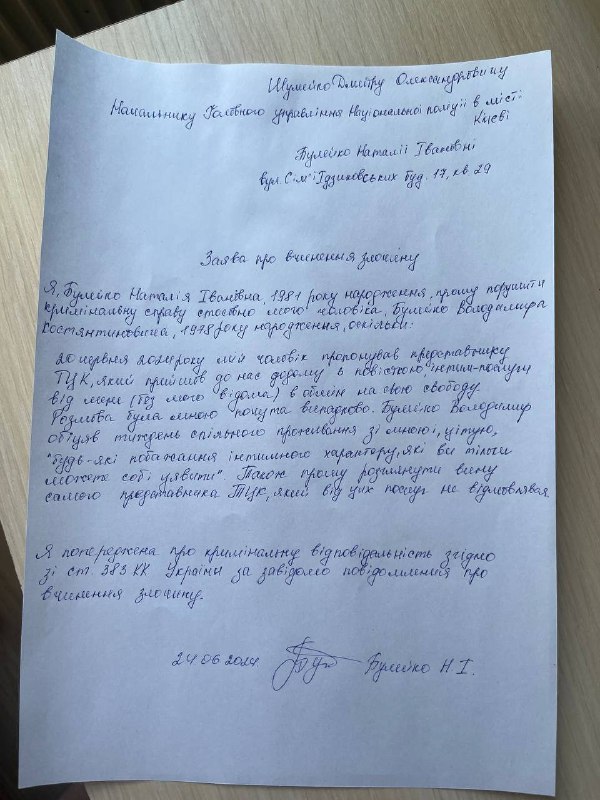 Шумейко Дмитру Олександровичу
Начальнику Головного управління Національної поліції в місті
Києві
Булейко Наталії Іванівні
вул. Сім'ї Ідзиковських буд. 17, кв 29
Заява про вчинення злочину
Я, Булейко Наталія Іванівна, 1981 року народження, прошу порушити
кримінальну справу стосовно мого чоловіка, Булейко Володимира
Костянтиновича, 1978 року народження, оскільки:
20 червня 2024 року мій чоловік пропонував представнику
ТЦК, який прийшов до нас додому з повісткою, інтим-послуги
від мене (без мого відома) в обмін на свою свободу.
Розмова була мною почута випадково. Булейко Володимир
обіцяв тиждень спільного проживання зі мною і, цитую,
"будь-які побажання інтимного характеру, які ви тільки
можете собі уявити". Також прошу розглянути вину
самого представника ТЦК, який від цих послуг не відмовлявся.
Я попереджена про кримінальну відповідальність згідно
зі ст. 383 КК України за завідомо повідомлення про
вчинення злочину.
24.06.2024. Булейко Н.І.